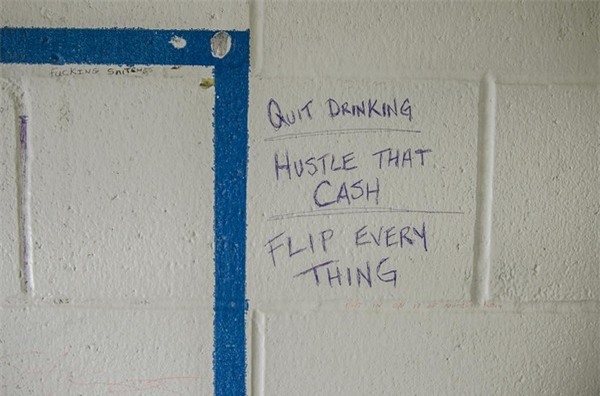 FUCKING SNITCHES
QUIT DRINKING
HUSTLE THAT
CASH
FLIP EVERY
THING